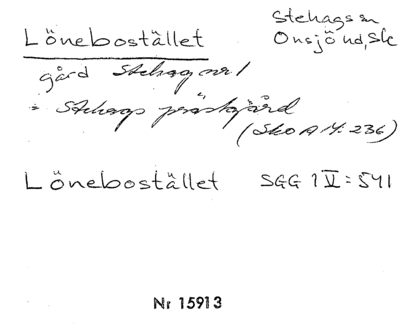 Lönebostället
Stehags sn
Onsjö hd, Sk
gård Stehag nr 1
= Stehags prästgård
(SkoA M: 236)
Lönebostället SGG 1 V:541
Nr 15913